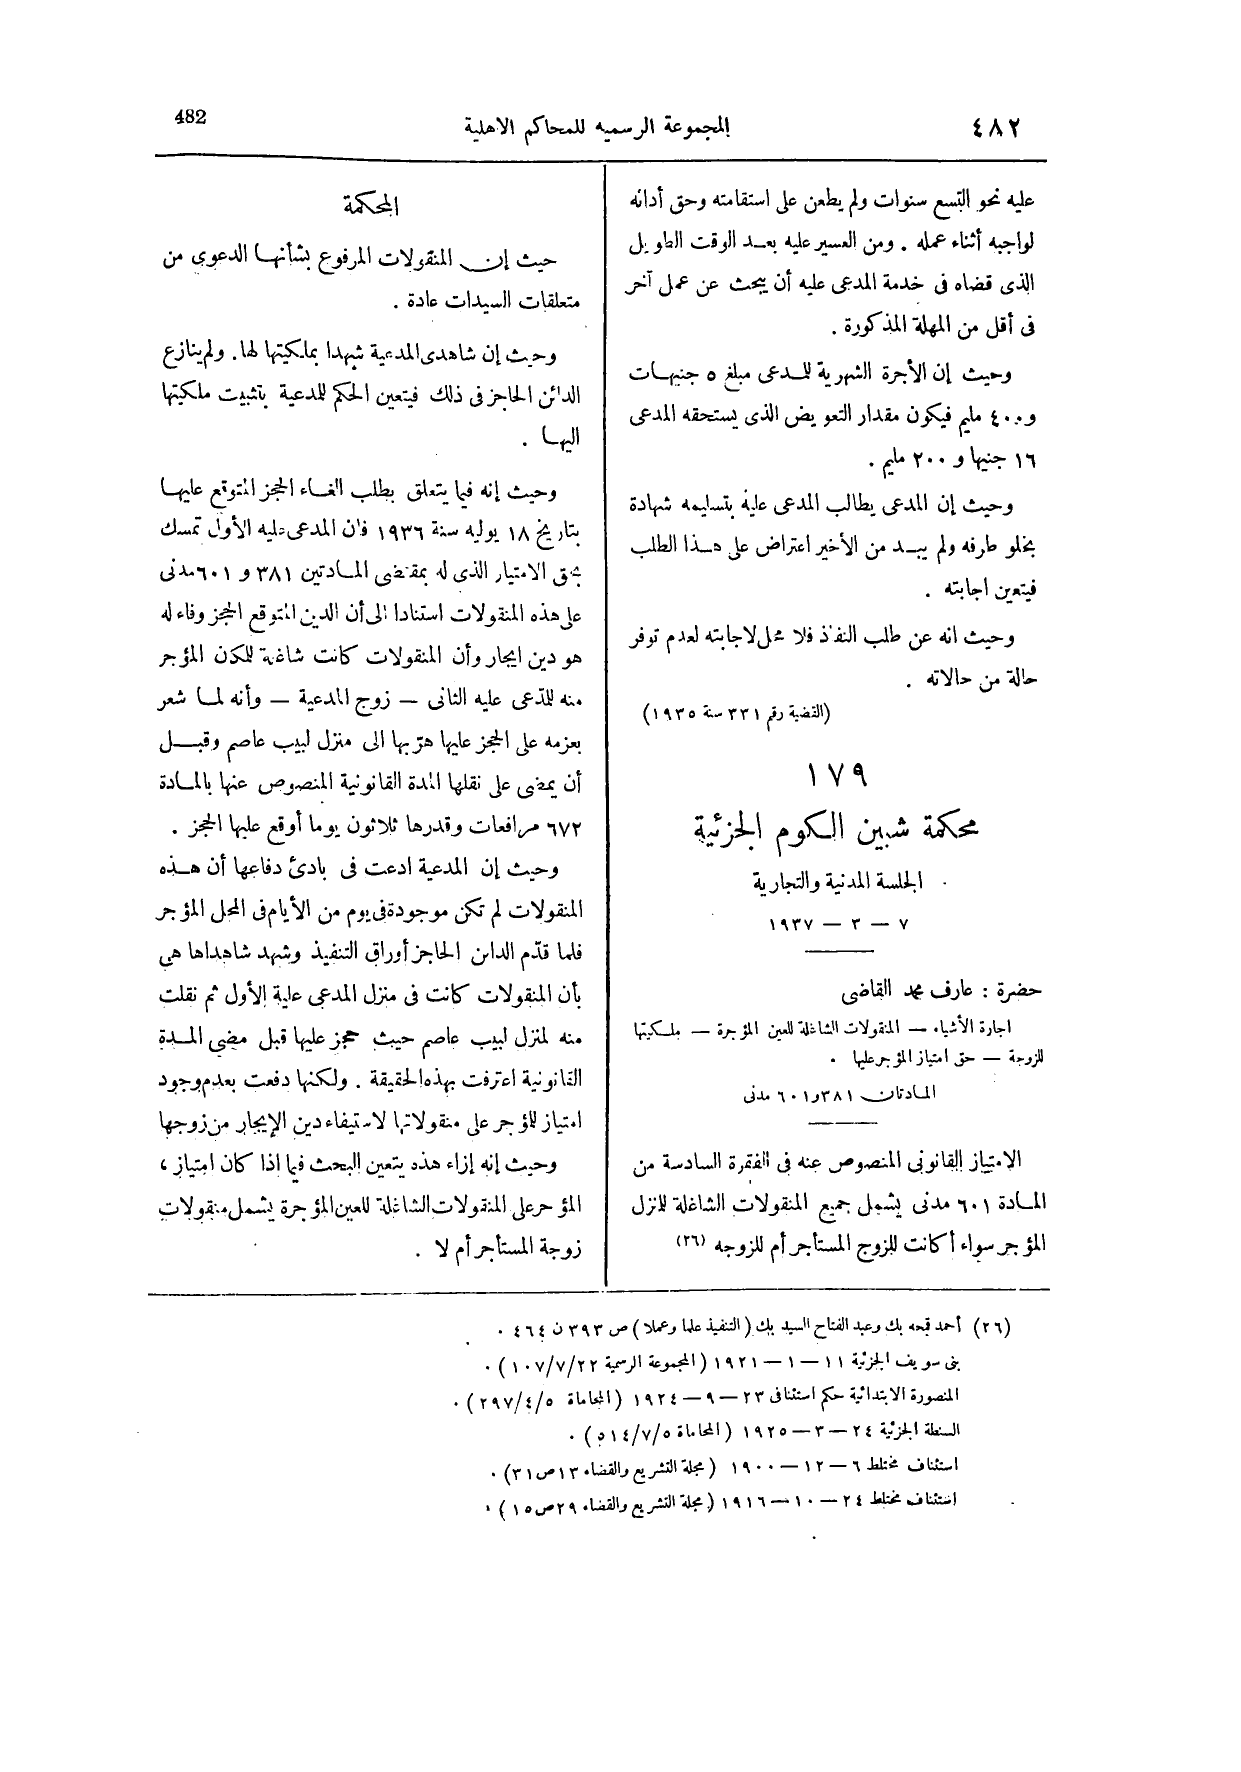 ٤٨٢
المجموعة الرسميه للمحاكم الاهلية
482
عليه نحو التسع سنوات ولم يطعن على استقامته وحق أدائه
لواجبه أثناء عمله . ومن العسير عليه بعد الوقت الطويل
الذى قضاه فى خدمة المدعى عليه أن يبحث عن عمل آخر
فى أقل من المهلة المذكورة .
وحيث إن الأجرة الشهرية للمدعى مبلغ ٥ جنيهات
و ٤٠٠ مليم فيكون مقدار التعويض الذى يستحقه المدعى
١٦ جنيها و ٢٠٠ مليم .
وحيث إن المدعى يطالب المدعى عليه بتسليمه شهادة
بخلو طرفه ولم يبد من الأخير اعتراض على هذا الطلب
فيتعين اجابته .
وحيث انه عن طلب النفاذ فلا محل لاجابته لعدم توفر
حالة من حالاته .
(القضية رقم ٣٣١ سنة ١٩٣٥)
١٧٩
محكمة شبين الكوم الجزئية
الجلسة المدنية والتجارية
٧ — ٣ — ١٩٣٧
حضرة : عارف محمد القاضى
اجارة الأشياء — المنقولات الشاغلة للعين المؤجرة — ملكيتها
للزوجة — حق امتياز المؤجر عليها .
المادتان ٣٨١ و ٦٠١ مدنى
الامتياز القانونى المنصوص عنه فى الفقرة السادسة من
المادة ٦٠١ مدنى يشمل جميع المنقولات الشاغلة للنزل
المؤجر سواء أكانت للزوج المستأجر أم للزوجه (٢٦)
المحكمة
حيث إن المنقولات المرفوع بشأنها الدعوى من
متعلقات السيدات عادة .
وحيث إن شاهدى المدعية شهدا بملكيتها لها . ولم ينازع
الدائن الحاجز فى ذلك فيتعين الحكم للمدعية بتثبيت ملكيتها
اليها .
وحيث إنه فيما يتعلق بطلب الغاء الحجز المتوقع عليها
بتاريخ ١٨ يوليه سنة ١٩٣٦ فان المدعى عليه الأول تمسك
بحق الامتياز الذى له بمقتضى المادتين ٣٨١ و ٦٠١ مدنى
على هذه المنقولات استنادا الى أن الدين المتوقع الحجز وفاء له
هو دين ايجار وأن المنقولات كانت شاغلة للمكان المؤجر
منه للمدعى عليه الثانى — زوج المدعية — وأنه لما شعر
بعزمه على الحجز عليها هرّبها الى منزل لبيب عاصم وقبل
أن يمضى على نقلها المدة القانونية المنصوص عنها بالمادة
٦٧٢ مرافعات وقدرها ثلاثون يوما أوقع عليها الحجز .
وحيث إن المدعية ادعت فى بادئ دفاعها أن هذه
المنقولات لم تكن موجودة فى يوم من الأيام فى المحل المؤجر
فلما قدّم الدائن الحاجز أوراق التنفيذ وشهد شاهداها هى
بأن المنقولات كانت فى منزل المدعى عليه الأول ثم نقلت
منه لمنزل لبيب عاصم حيث حجز عليها قبل مضى المدة
القانونية اعترفت بهذه الحقيقة . ولكنها دفعت بعدم وجود
امتياز للمؤجر على منقولاتها لاستيفاء دين الإيجار من زوجها
وحيث إنه إزاء هذه يتعين البحث فيما اذا كان امتياز ،
المؤجر على المنقولات الشاغلة للعين المؤجرة يشمل منقولات
زوجة المستأجر أم لا .
(٢٦) أحمد قمحه بك وعبد الفتاح السيد بك (التنفيذ علما وعملا) ص ٣٩٣ ن ٤٦٤ .
بنى سويف الجزئية ١١ — ١ — ١٩٢١ (المجموعة الرسمية ١٠٧/٧/٢٢) .
المنصورة الابتدائية حكم استئنافى ٢٣ — ٩ — ١٩٢٤ (المحاماة ٢٩٧/٤/٥) .
السنطة الجزئية ٢٤ — ٣ — ١٩٢٥ (المحاماة ٥١٤/٧/٥) .
استئناف مختلط ٦ — ١٢ — ١٩٠٠ (مجلة التشريع والقضاء ١٣ ص ٣١) .
استئناف مختلط ٢٤ — ١٠ — ١٩١٦ (مجلة التشريع والقضاء ٢٩ ص ١٥) .